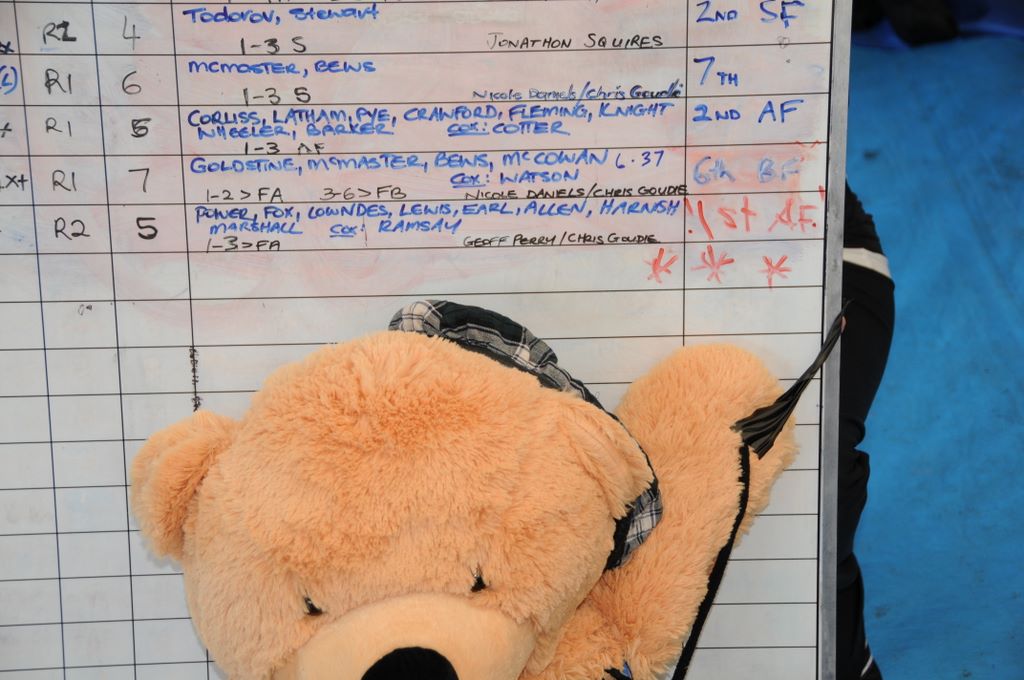 R2 4 Todorov, Stewart 2ND SF
1-3 S JONATHON SQUIRES
R1 6 MCMASTER, BEWS 7TH
1-3 S Nicole Daniels/Chris Goudie
R1 5 CORLISS, LATHAM, PYE, CRAWFORD, FLEMING, KNIGHT 2ND AF
WHEELER, BARKER COX: COTTER
1-3 AF
x+ R1 7 GOLDSTINE, MCMASTER, BEWS, MCCOWAN L.37 6th BF
COX: WATSON
1-2 > FA 3-6 > FB NICOLE DANIELS/CHRIS GOUDIE
R2 5 POWER, FOX, LOWNDES, LEWIS, EARL, ALLEN, HARNISH 1st AF!
MARSHALL COX: RAMSAY
1-3 > FA GEOFF PERRY/CHRIS GOUDIE
* * *